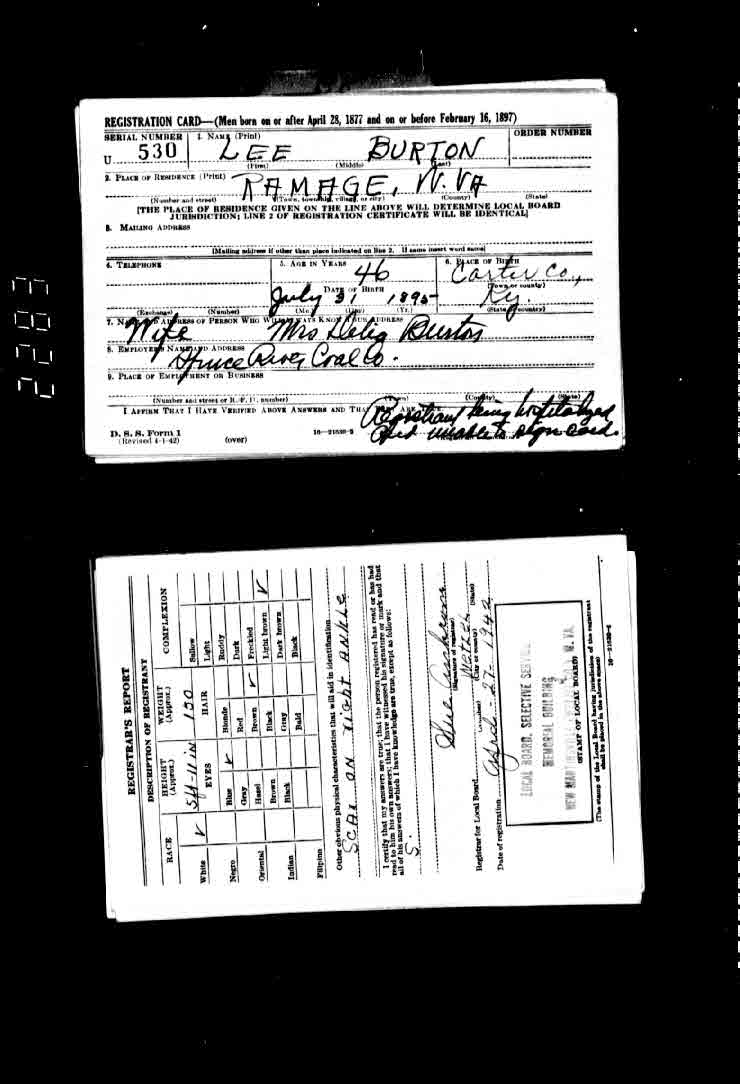 REGISTRATION CARD—(Men born on or after April 28, 1877 and on or before February 16, 1897)
SERIAL NUMBER 1. NAME (Print) ORDER NUMBER
U 530 LEE BURTON
(First) (Middle) (Last)
2. PLACE OF RESIDENCE (Print)
RAMAGE, W.VA
(Number and street) (Town, township, village, or city) (County) (State)
[THE PLACE OF RESIDENCE GIVEN ON THE LINE ABOVE WILL DETERMINE LOCAL BOARD
JURISDICTION; LINE 2 OF REGISTRATION CERTIFICATE WILL BE IDENTICAL]
3. MAILING ADDRESS
[Mailing address if other than place indicated on line 2. If same insert word same]
4. TELEPHONE 5. AGE IN YEARS 6. PLACE OF BIRTH
46 Carter Co.,
DATE OF BIRTH (Town or county)
July 31 1895 Ky.
(Exchange) (Number) (Mo.) (Day) (Yr.) (State or country)
7. NAME AND ADDRESS OF PERSON WHO WILL ALWAYS KNOW YOUR ADDRESS
Wife Mrs Burton
8. EMPLOYER'S NAME AND ADDRESS
Spruce River Coal Co.
9. PLACE OF EMPLOYMENT OR BUSINESS
(Number and street or R. F. D. number) (Town) (County) (State)
I AFFIRM THAT I HAVE VERIFIED ABOVE ANSWERS AND THAT THEY ARE TRUE.
Registrant being hospitalized
and unable to sign card.
D. S. S. Form 1
(Revised 4-1-42) (over) 16—21630-2
2283
REGISTRAR'S REPORT
DESCRIPTION OF REGISTRANT
RACE HEIGHT (Approx.) WEIGHT (Approx.) COMPLEXION
White ✓ 5ft-11 in 150 Sallow
EYES HAIR Light
Negro Blue ✓ Blonde Ruddy
Gray Red Dark
Oriental Hazel Brown ✓ Freckled
Brown Black Light brown ✓
Indian Black Gray Dark brown
Bald Black
Filipino
Other obvious physical characteristics that will aid in identification
SCAR ON right ANKLE
I certify that my answers are true; that the person registered has read or has had
read to him his own answers; that I have witnessed his signature or mark and that
all of his answers of which I have knowledge are true, except as follows:
S.
(Signature of registrar)
Registrar for Local Board Wetzel
(Number) (City or county) (State)
Date of registration April-27-1942
LOCAL BOARD, SELECTIVE SERVICE
MEMORIAL BUILDING
NEW MARTINSVILLE, W. VA.
(STAMP OF LOCAL BOARD)
(The stamp of the Local Board having jurisdiction of the registrant
shall be placed in the above space)